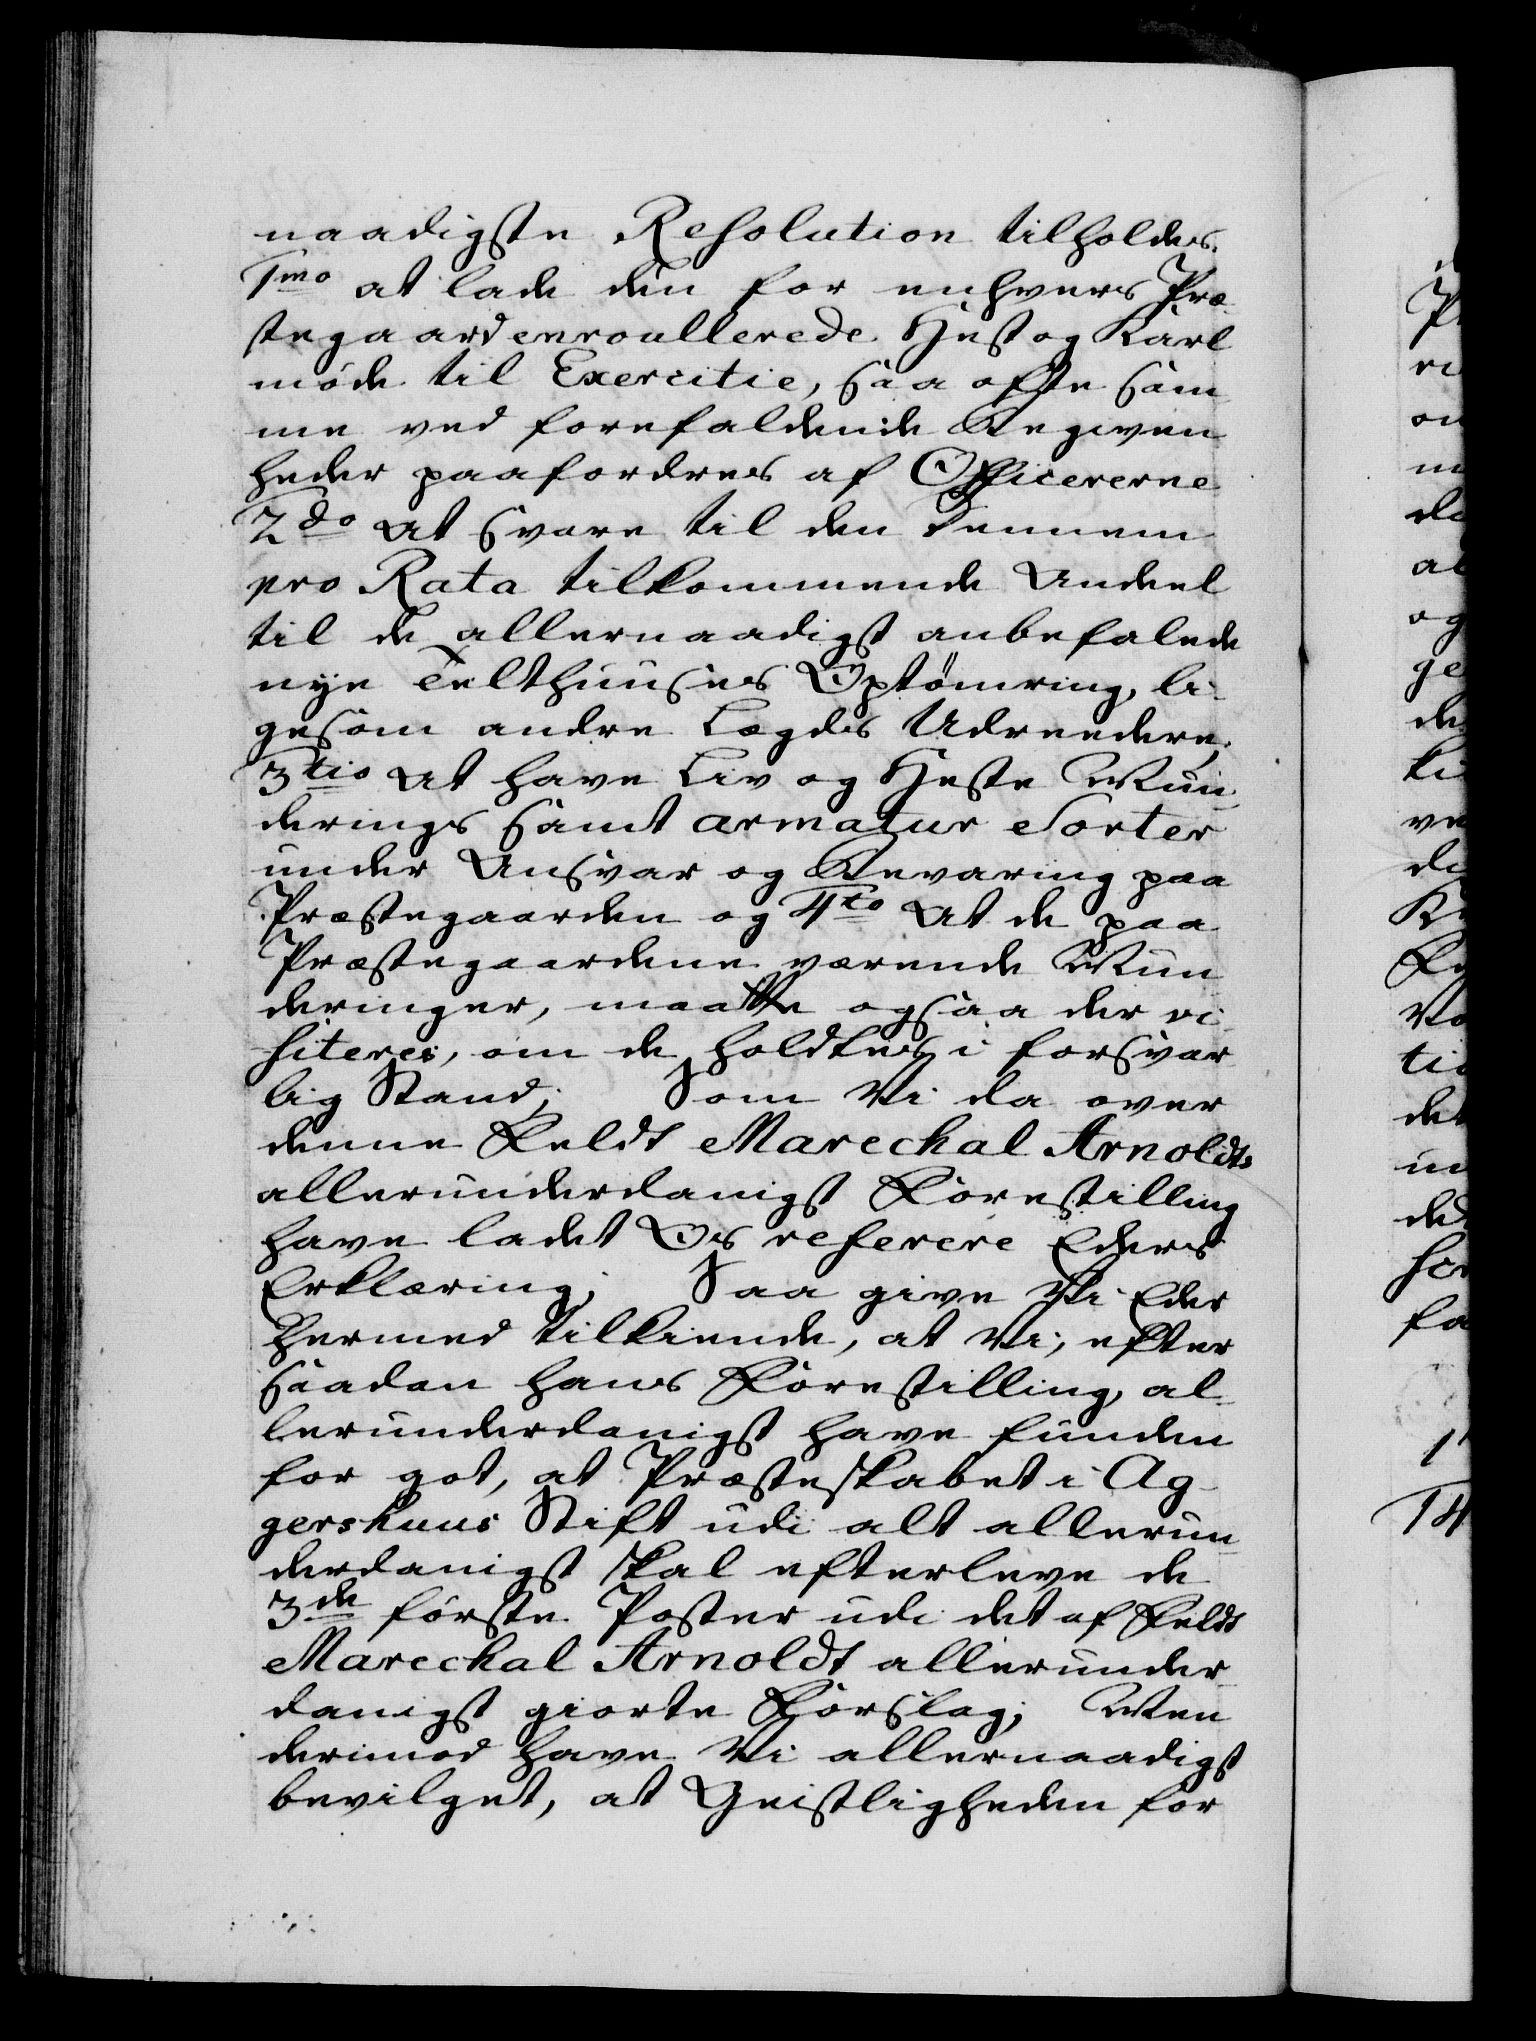 naadigste Resolution tilholdes.
1mo at lade den for enhvers Præ-
stegaard enroullerede Hest og Karl
möde til Exercitie, saa ofte sam
me ved forefaldende Begiven
heder paafordres af Officererne
2do At svare til den dennem
pro Rata tilkommende Andeel
til de allernaadigst anbefalede
nye Telthuuses Optömring, li-
gesom andre Lægds Udreedere,
3tio At have Liv og Heste Mun-
derings samt armatur Sorter
under Ansvar og Bevaring paa
Præstegaarden og 4to At de paa
Præstegaardene værende Mun
deringer, maatte ogsaa der vi
siteres, om de holdtes i forsvar
lig Stand; Som Vi da over
denne Feldt Marechal Arnoldts
allerunderdanigst Forestilling
have ladet Os referere Eders
Erklæring; Saa give Vi Eder
hermed tilkiende, at Vi, efter
saadan hans Forestilling, al-
lerunderdanigst have funden
for got, at Præsteskabet i Ag-
gershuus Stift udi alt allerun-
derdanigst skal efterleve de
3de förste Poster udi det af Feldt
Marechal Arnoldt allerunder-
danigst giorte Forslag; Men
derimod have Vi allernaadigst
bevilget, at Geistligheden for